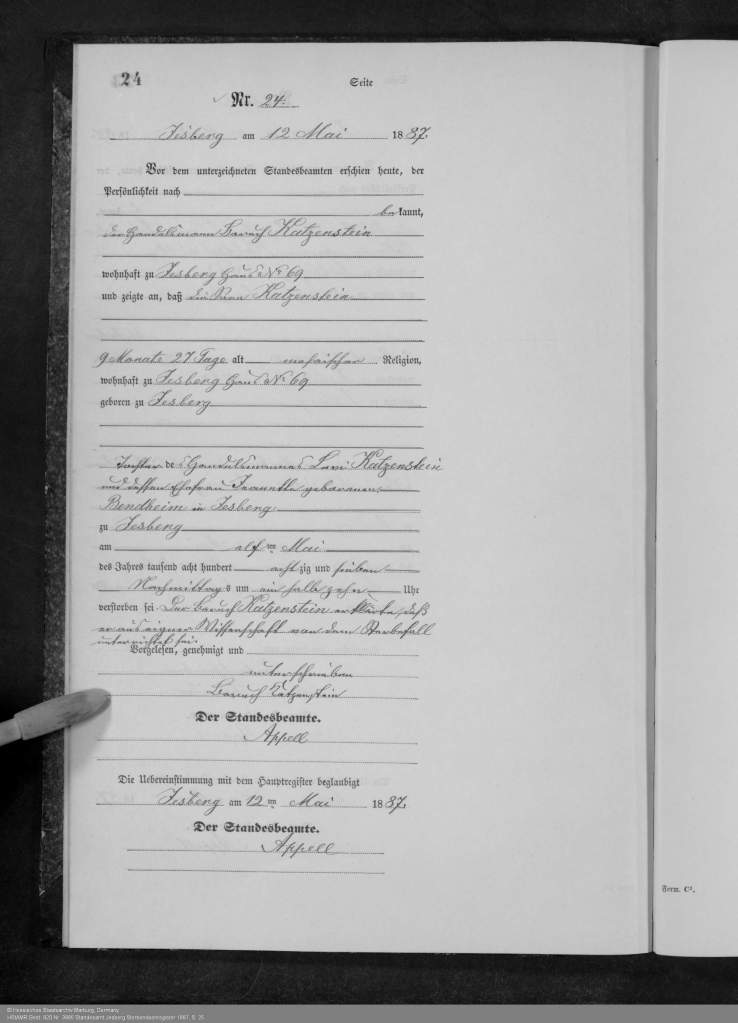 24
Seite
Nr. 24.
Jesberg am 12 Mai 1887.
Vor dem unterzeichneten Standesbeamten erschien heute, der
Persönlichkeit nach
bekannt,
der Handelsmann Baruch Katzenstein
wohnhaft zu Jesberg Haus No 69
und zeigte an, daß die Sara Katzenstein
9 Monate 27 Tage alt mosaischer Religion,
wohnhaft zu Jesberg Haus No 69
geboren zu Jesberg
Tochter des Handelsmannes Levi Katzenstein
und dessen Ehefrau Jeanette geborenen
Bendheim in Jesberg
zu Jesberg
am elften Mai
des Jahres tausend acht hundert achtzig und sieben
Nachmittags um ein halb zehn Uhr
verstorben sei. Der Baruch Katzenstein erklärte, daß
er aus eigner Wissenschaft von dem Sterbefall
unterrichtet sei.
Vorgelesen, genehmigt und
unterschrieben
Baruch Katzenstein
Der Standesbeamte.
Appell
Die Uebereinstimmung mit dem Hauptregister beglaubigt
Jesberg am 12ten Mai 1887.
Der Standesbeamte.
Appell
Form. C².
© Hessisches Staatsarchiv Marburg, Germany
HStAMR Best. 920 Nr. Standesamt Jesberg Sterbenebenregister 1887, S. 25